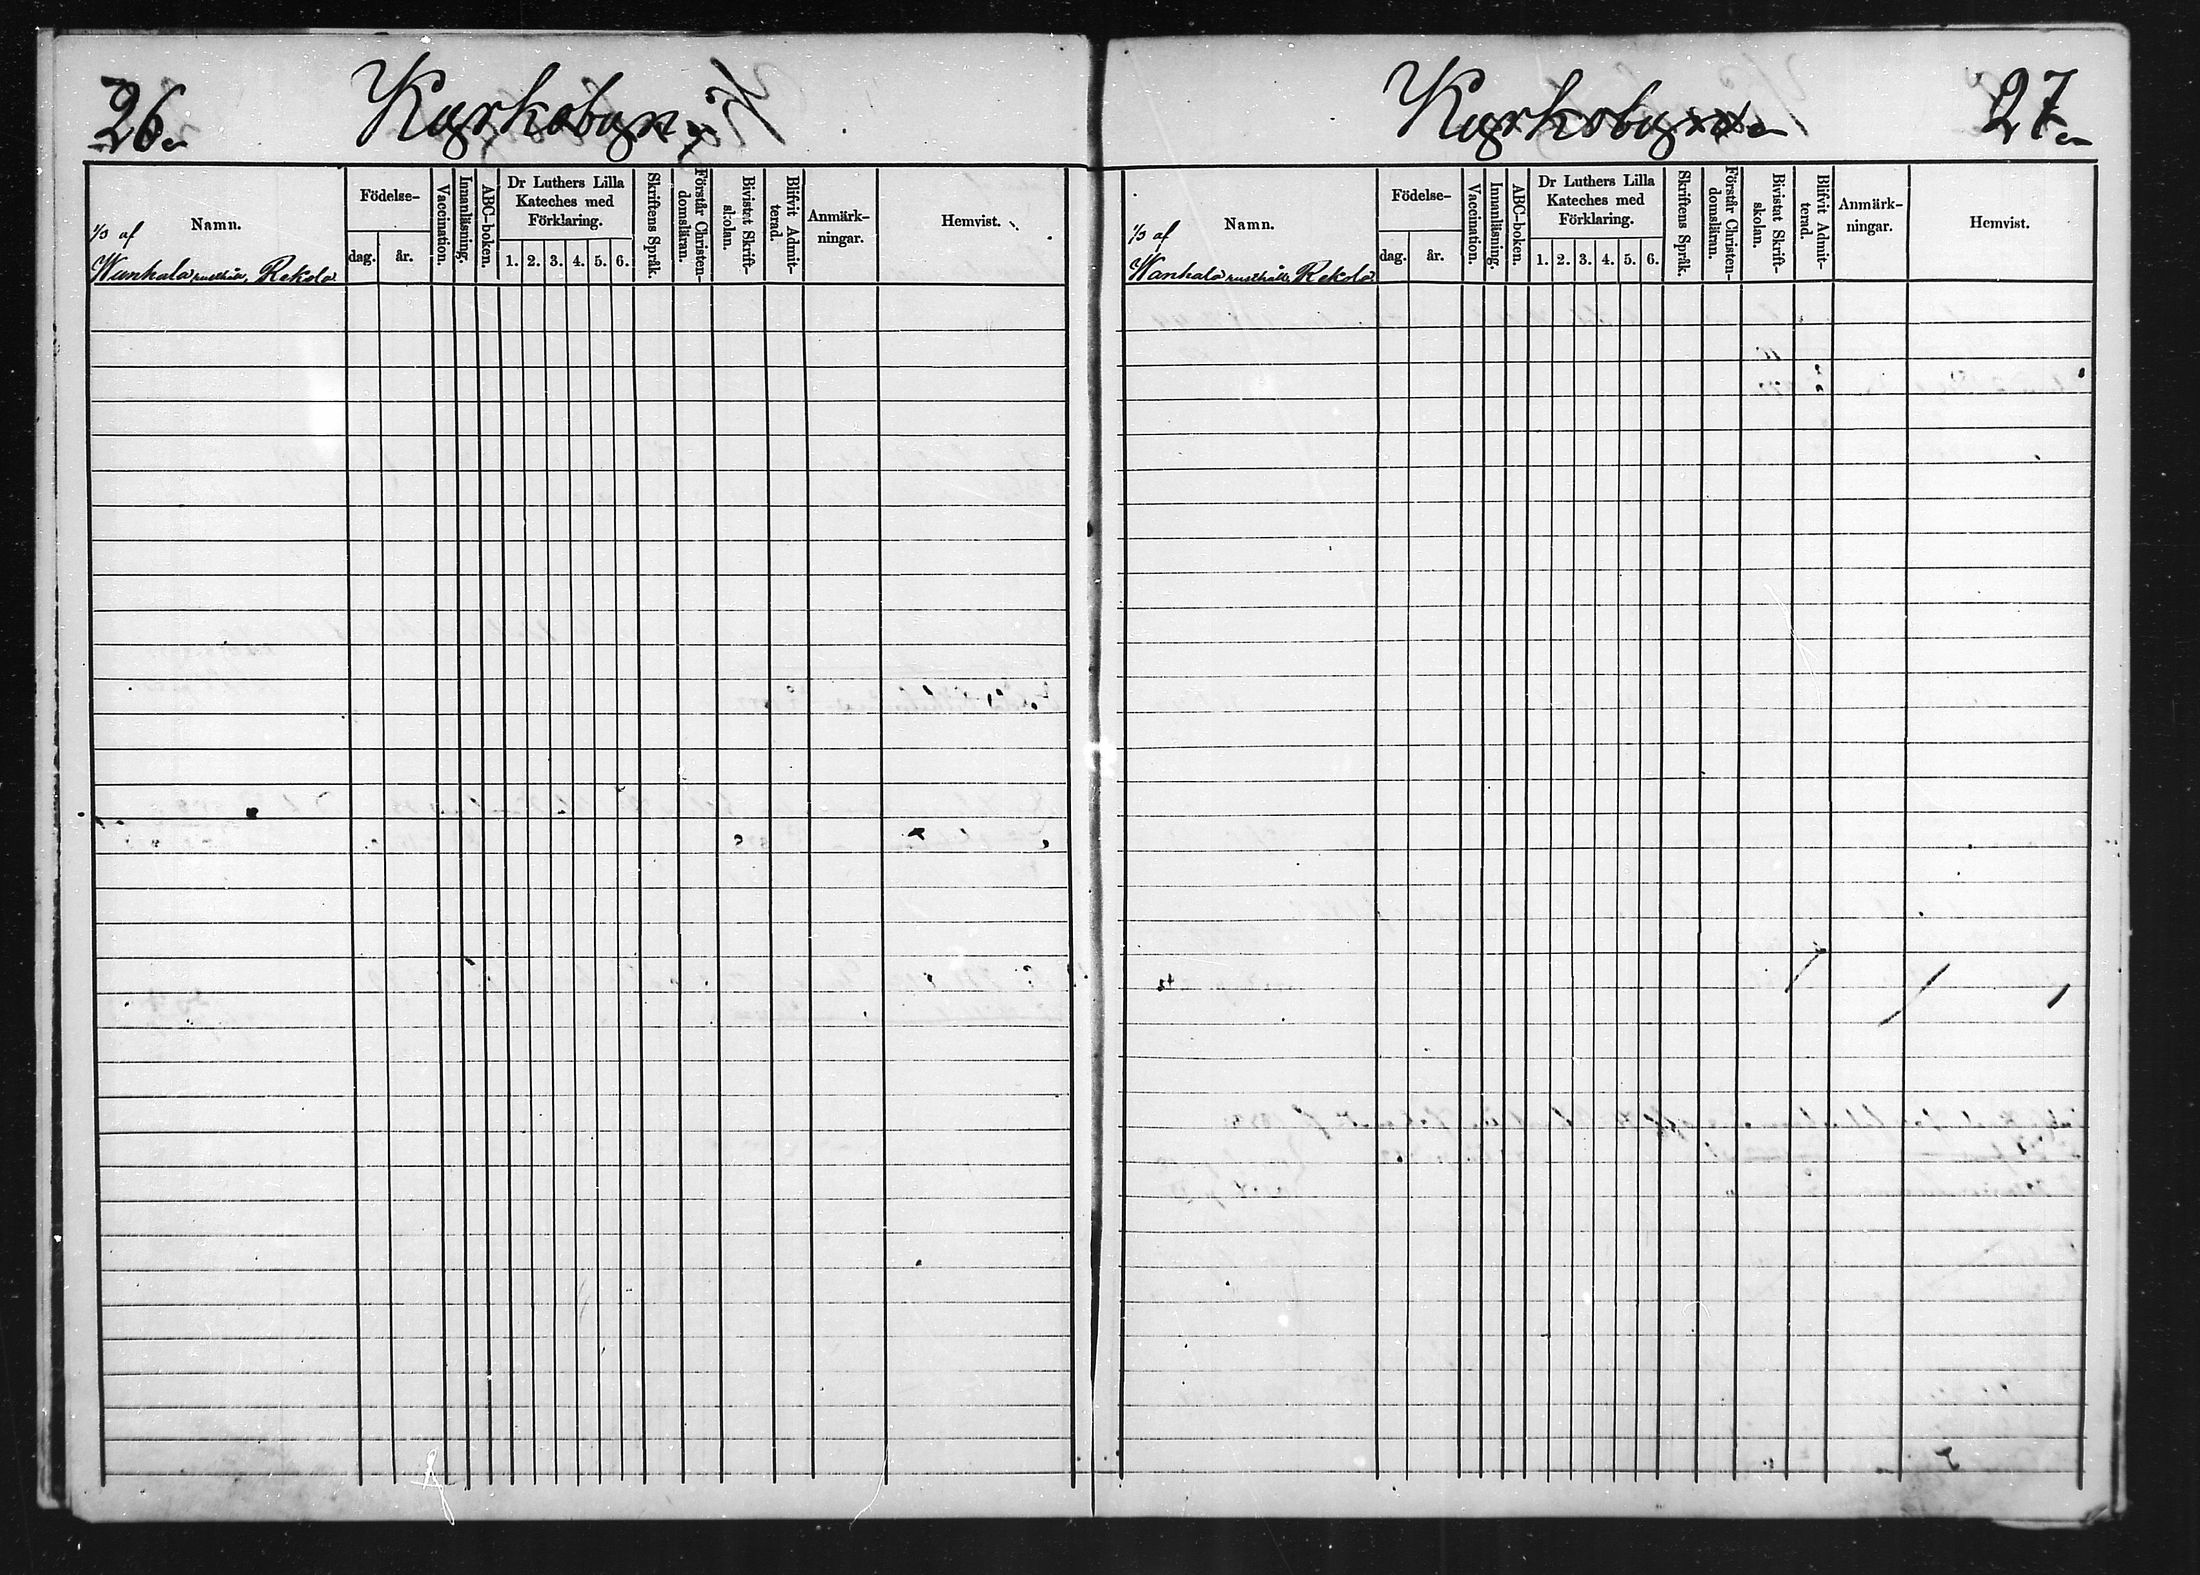 26.
Kyrkoby
Namn.
Födelse-
dag.
år.
Vaccination.
Innanläsning.
ABC-boken.
Dr Luthers Lilla
Kateches med
Förklaring.
1. 2. 3. 4. 5. 6.
Skriftens Språk.
Förstår Christen-
domsläran.
Bivistat Skrift-
skolan.
Blifvit Admit-
terad.
Anmärk-
ningar.
Hemvist.
1/3 af
Wanhala rusthåll, Rekola
Kyrkoby
27.
Namn.
Födelse-
dag.
år.
Vaccination.
Innanläsning.
ABC-boken.
Dr Luthers Lilla
Kateches med
Förklaring.
1. 2. 3. 4. 5. 6.
Skriftens Språk.
Förstår Christen-
domsläran.
Bivistat Skrift-
skolan.
Blifvit Admit-
terad.
Anmärk-
ningar.
Hemvist.
1/3 af
Wanhala rusthåll, Rekola